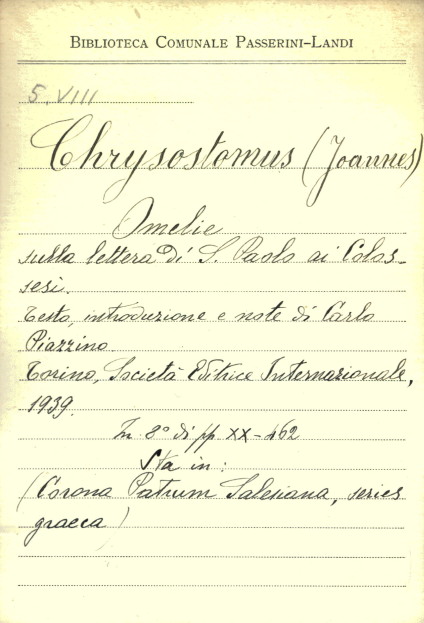 BIBLIOTECA COMUNALE PASSERINI-LANDI
5. VIII
Chrysostomus (Joannes)
Omelie
sulla lettera di S. Paolo ai Colos-
sesi.
Testo, introduzione e note di Carlo
Piazzino.
Torino, Società Editrice Internazionale,
1939.
In 8° di pp. XX-462
Sta in:
(Corona Patrum Salesiana, series
graeca)